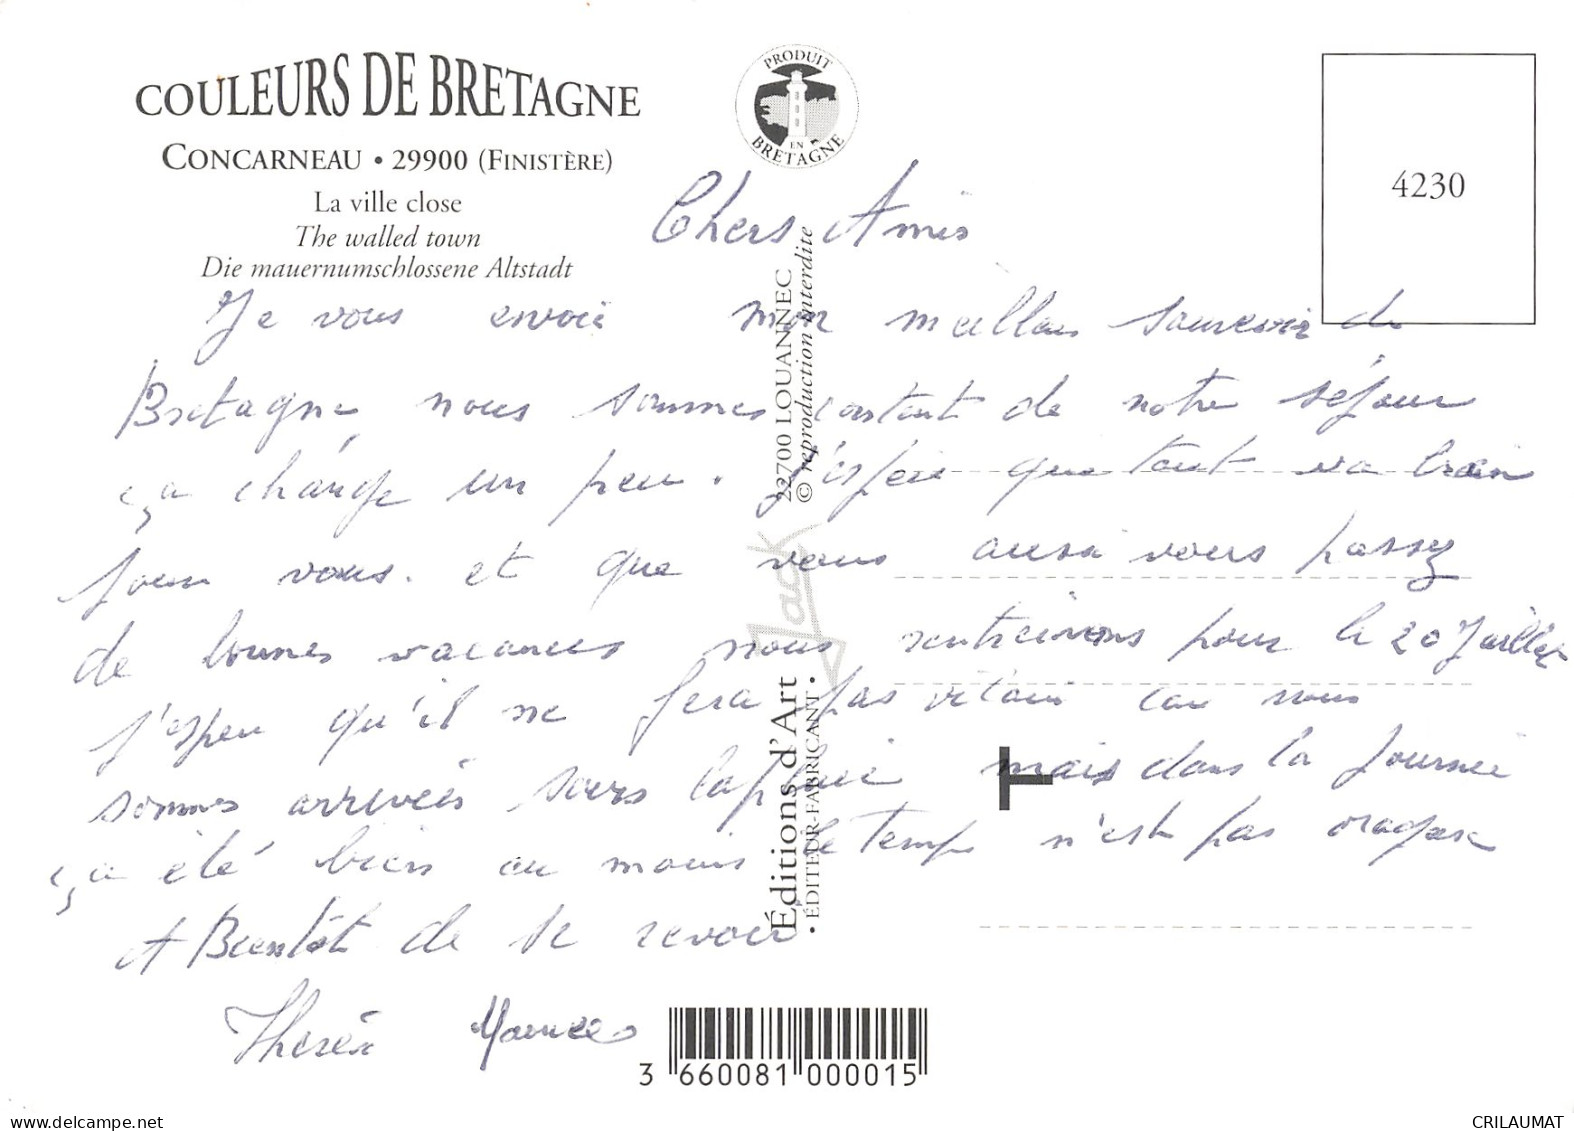 COULEURS DE BRETAGNE
CONCARNEAU • 29900 (FINISTÈRE)
La ville close
The walled town
Die mauernumschlossene Altstadt
PRODUIT
EN
BRETAGNE
4230
Chers Amis
Je vous envoie mon meilleur souvenir de
Bretagne nous sommes contant de notre séjour
ça change un peu. j'espère que tout va bien
pour vous. et que vous aussi vous passez
de bonnes vacances nous rentreirons pour le 20 Juillet
j'espere qu'il ne fera pas vilain car nous
sommes arrivées sous la pluie mais dans la journée
ça été bien au moins le temps n'est pas orageux
A Bientôt de se revoir
22700 LOUANNEC
© reproduction interdite
Jack
Éditions d'Art
• ÉDITEUR-FABRICANT •
T
3 660081 000015
CRILAUMAT